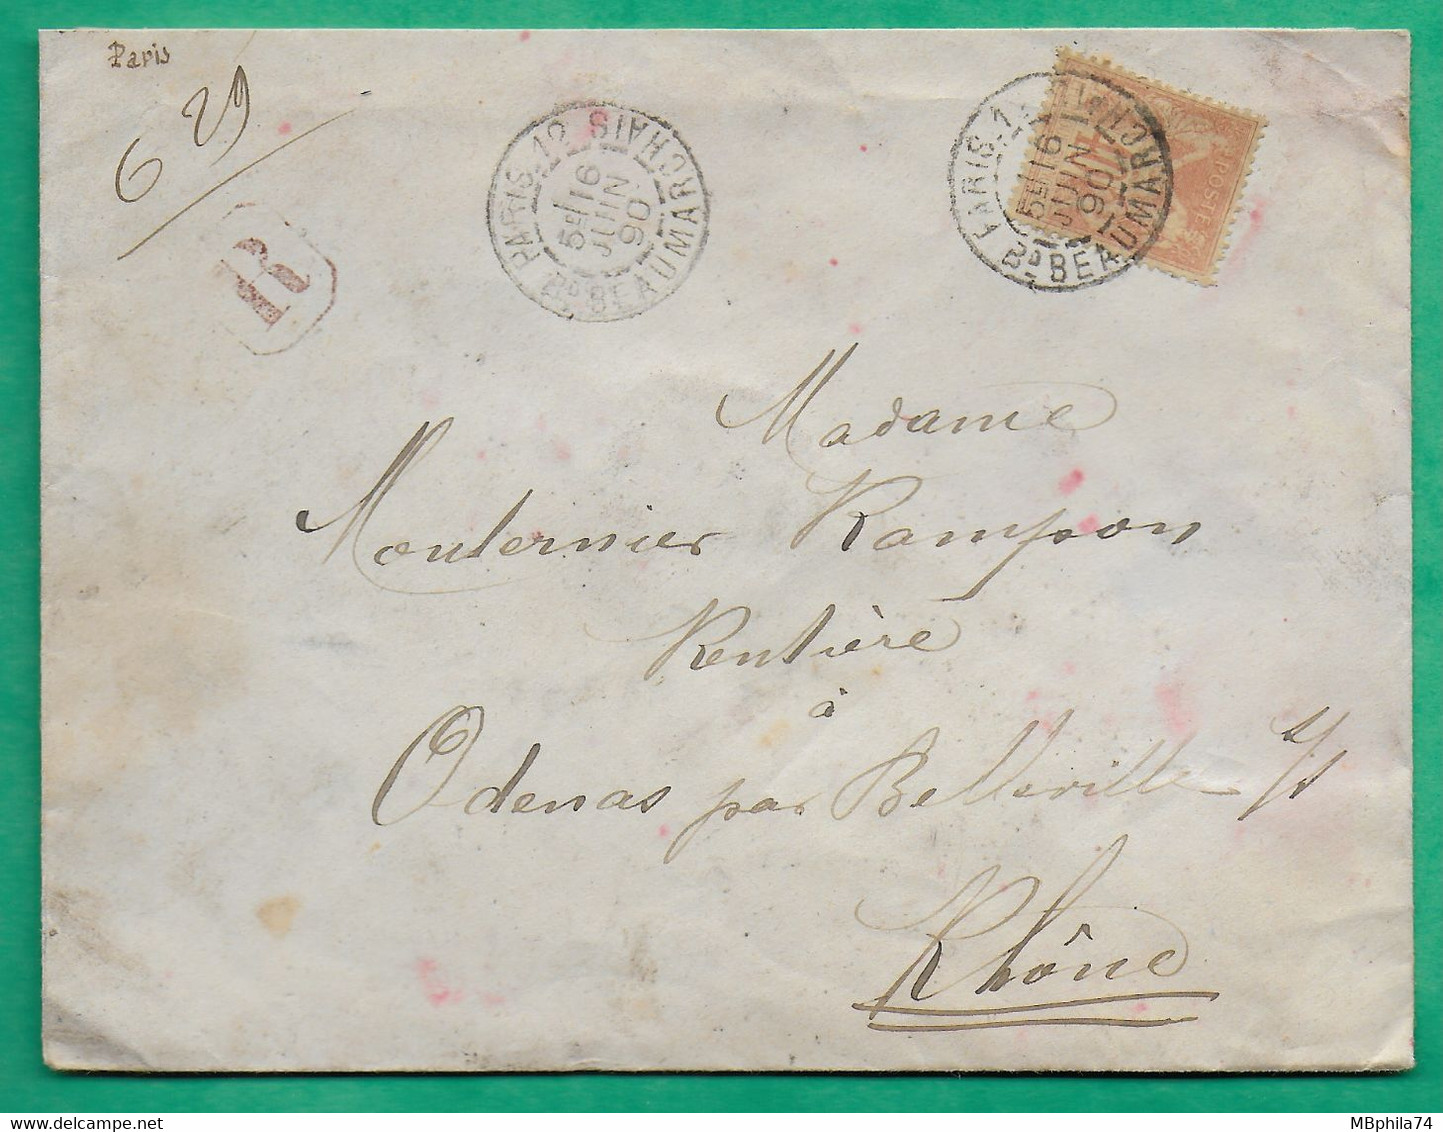 Paris
629
R
PARIS.12 Bᴰ BEAUMARCHAIS
5E 16
JUIN
90
PARIS.12 Bᴰ BEAUMARCHAIS
5E 16
JUIN
90
POSTE
Madame
Monternier Rampon
Rentière
à
Odenas par Belleville s/s
Rhône
MBphila74